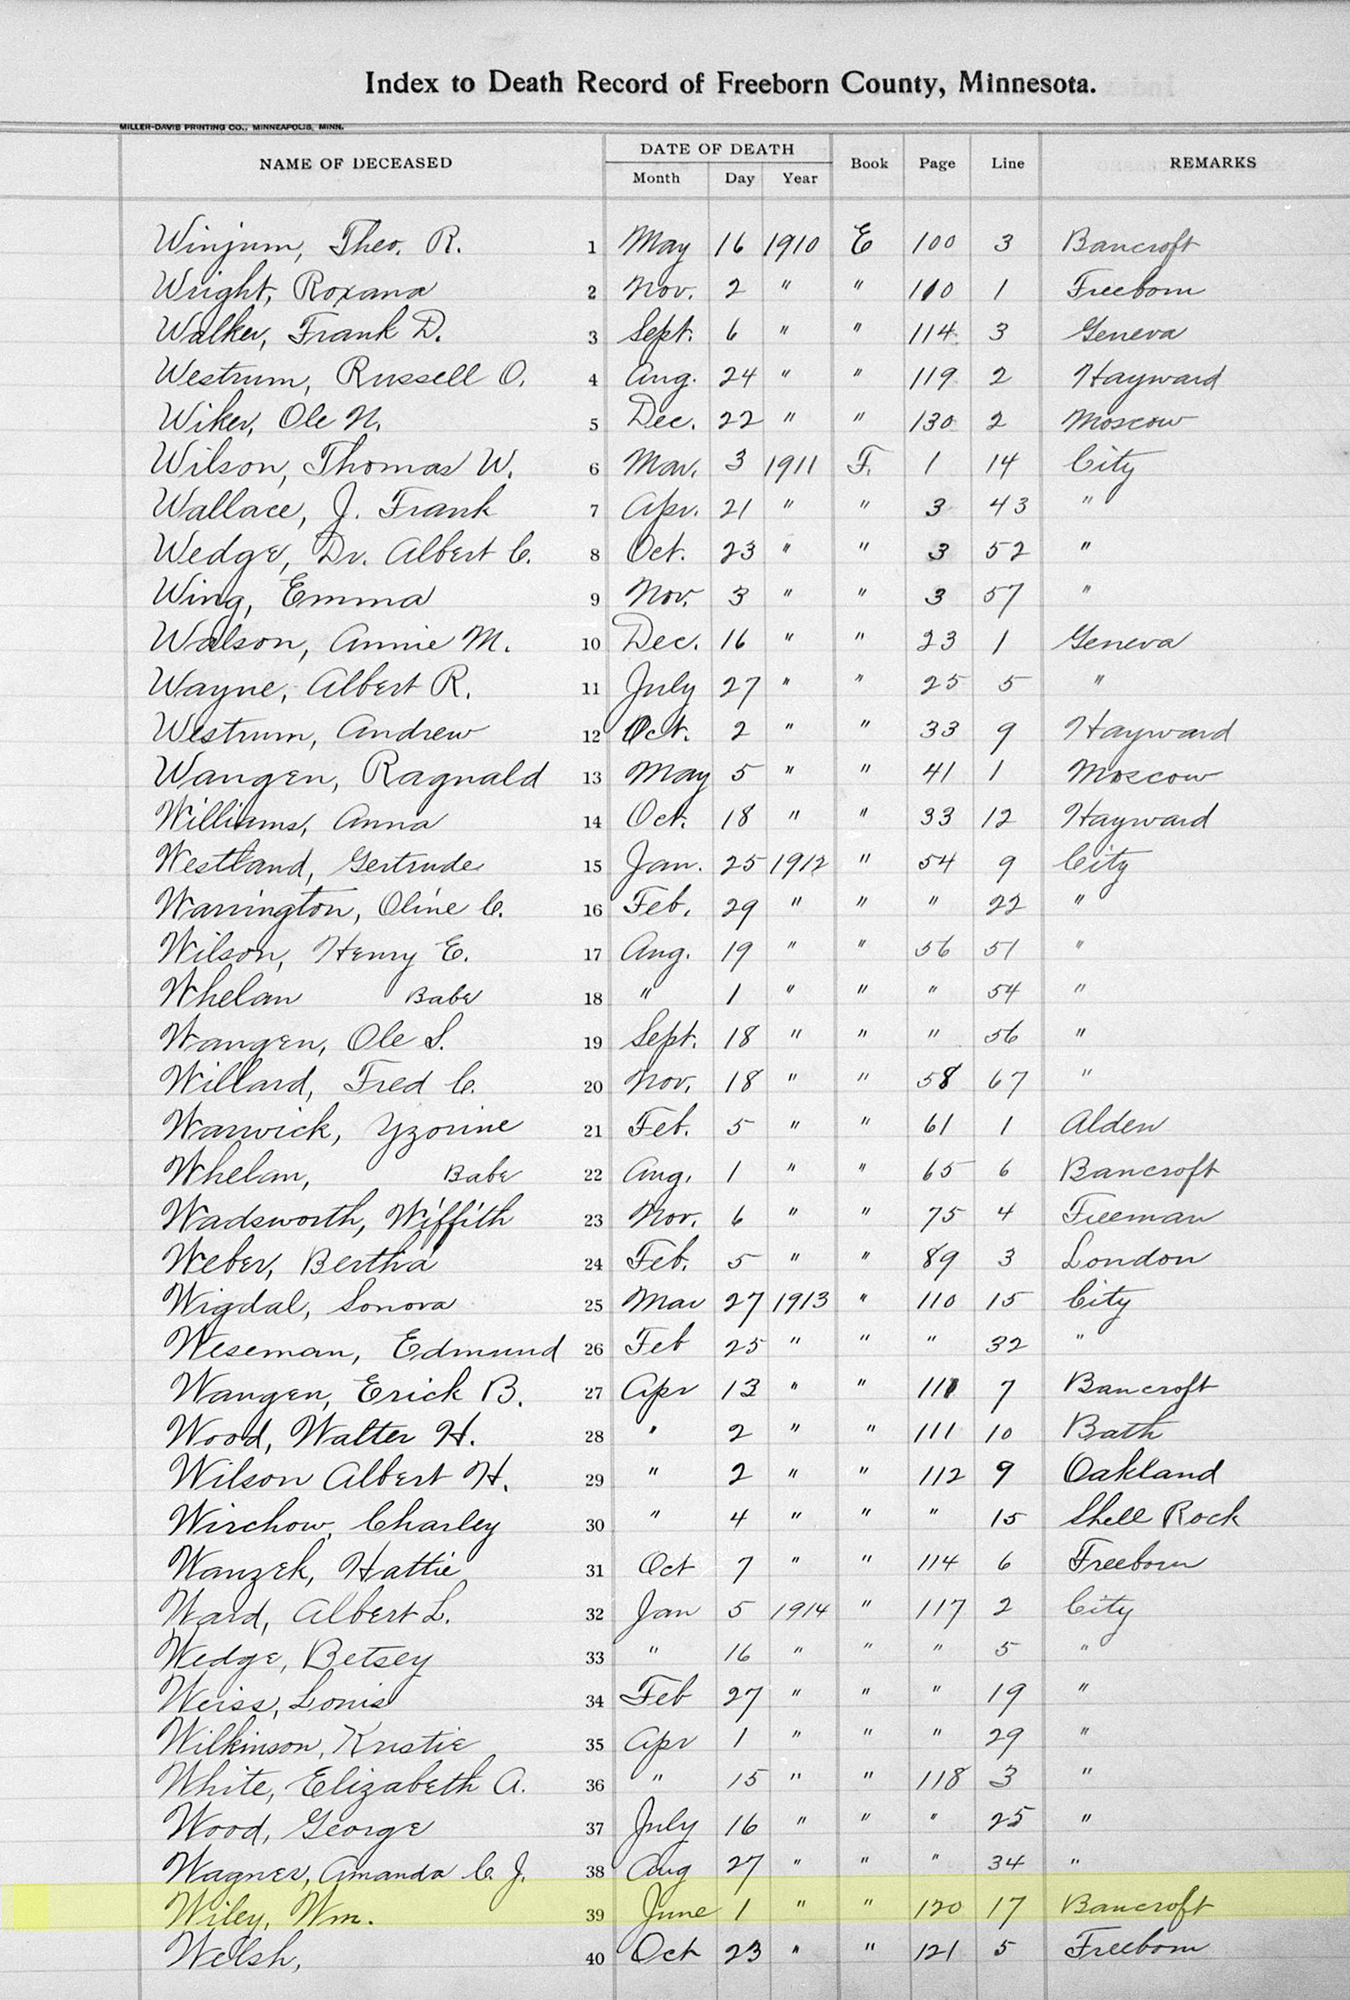 Index to Death Record of Freeborn County, Minnesota.
MILLER-DAVIS PRINTING CO., MINNEAPOLIS, MINN.
NAME OF DECEASED DATE OF DEATH Book Page Line REMARKS
Month Day Year
Winjum, Theo. R. 1 May 16 1910 E 100 3 Bancroft
Wright, Roxana 2 Nov. 2 " " 110 1 Freeborn
Walker, Frank D. 3 Sept. 6 " " 114 3 Geneva
Westrum, Russell O. 4 Aug. 24 " " 119 2 Hayward
Wiker, Ole N. 5 Dec. 22 " " 130 2 Moscow
Wilson, Thomas W. 6 Mar. 3 1911 F. 1 14 City
Wallace, J. Frank 7 Apr. 21 " " 3 43 "
Wedge, Dr. Albert C. 8 Oct. 23 " " 3 52 "
Wing, Emma 9 Nov. 3 " " 3 57 "
Walson, Annie M. 10 Dec. 16 " " 23 1 Geneva
Wayne, Albert R. 11 July 27 " " 25 5 "
Westrum, Andrew 12 Oct. 2 " " 33 9 Hayward
Wangen, Ragnald 13 May 5 " " 41 1 Moscow
Williams, Anna 14 Oct. 18 " " 33 12 Hayward
Westland, Gertrude 15 Jan. 25 1912 " 54 9 City
Warrington, Oline C. 16 Feb. 29 " " " 22 "
Wilson, Henry E. 17 Aug. 19 " " 56 51 "
Whelan Babe 18 " 1 " " " 54 "
Wangen, Ole S. 19 Sept. 18 " " " 56 "
Willard, Fred C. 20 Nov. 18 " " 58 67 "
Warwick, Yzorine 21 Feb. 5 " " 61 1 Alden
Whelan, Babe 22 Aug. 1 " " 65 6 Bancroft
Wadsworth, Wiffith 23 Nov. 6 " " 75 4 Freeman
Weber, Bertha 24 Feb. 5 " " 89 3 London
Wigdal, Sonora 25 Mar 27 1913 " 110 15 City
Weseman, Edmund 26 Feb 25 " " " 32 "
Wangen, Erick B. 27 Apr 13 " " 111 7 Bancroft
Wood, Walter H. 28 " 2 " " 111 10 Bath
Wilson Albert H. 29 " 2 " " 112 9 Oakland
Wirchow, Charley 30 " 4 " " " 15 Shell Rock
Wanzek, Hattie 31 Oct 7 " " 114 6 Freeborn
Ward, Albert L. 32 Jan 5 1914 " 117 2 City
Wedge, Betsey 33 " 16 " " " 5 "
Weiss, Louis 34 Feb 27 " " " 19 "
Wilkinson, Kristie 35 Apr 1 " " " 29 "
White, Elizabeth A. 36 " 15 " " 118 3 "
Wood, George 37 July 16 " " " 25 "
Wagner, Amanda C. J. 38 Aug 27 " " " 34 "
Wiley, Wm. 39 June 1 " " 120 17 Bancroft
Welsh, 40 Oct 23 " " 121 5 Freeborn